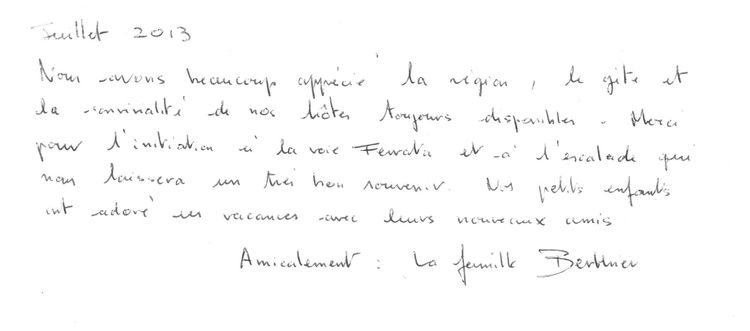 Juillet 2013
Nous avons beaucoup apprécié la région, le gîte et
la convivialité de nos hôtes toujours disponibles. Merci
pour l'initiation à la voie Ferrata et à l'escalade qui
nous laissera un très bon souvenir. Nos petits enfants
ont adoré ces vacances avec leurs nouveaux amis
Amicalement : La famille